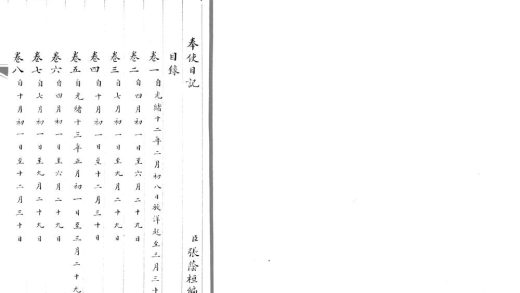 奉使日記 臣張蔭桓
目錄
卷一 自光緒十二年二月初八日放洋起至三月三十
卷二 自四月初一日至六月二十九日
卷三 自七月初一日至九月二十九日
卷四 自十月初一日至十二月三十日
卷五 自光緒十三年正月初一日至三月二十九
卷六 自四月初一日至六月二十九日
卷七 自七月初一日至九月二十九日
卷八 自十月初一日至十二月三十日